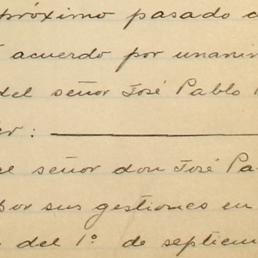 próximo pasado
acuerdo por unanim
del señor José Pablo
er:
el señor don José Pa
por sus gestiones en
del 1º de septiem